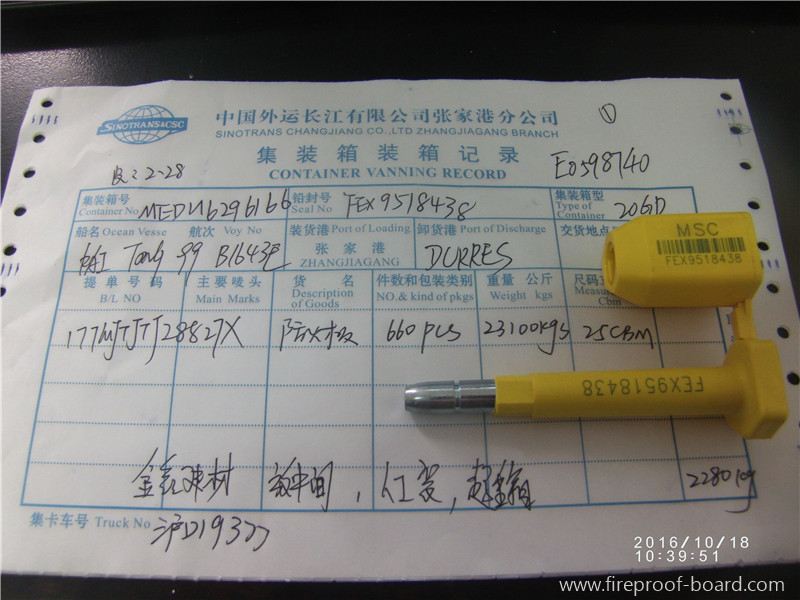 SINOTRANS&CSC
中国外运长江有限公司张家港分公司
SINOTRANS CHANGJIANG CO.,LTD ZHANGJIAGANG BRANCH
①
集装箱装箱记录
CONTAINER VANNING RECORD
2-28
E0598140
集装箱号 Container No MEDU6296166
铅封号 Seal No FEX9518438
集装箱型 Type of Container 20GD
船名 Ocean Vesse 航次 Voy No Tong 99 B1643E
装货港 Port of Loading 张家港 ZHANGJIAGANG
卸货港 Port of Discharge DURRES
交货地点
提单号码 B/L NO
主要唛头 Main Marks
货名 Description of Goods
件数和包装类别 NO.& kind of pkgs
重量 公斤 Weight kgs
尺码 Measu Cbm
177MJTJTJ28827X 防火板 660 PCS 23100kgs 25CBM
MSC
FEX9518438
FEX9518438
建材 中间,
2280kg
集卡车号 Truck No 沪D19377
2016/10/18
10:39:51
www.fireproof-board.com